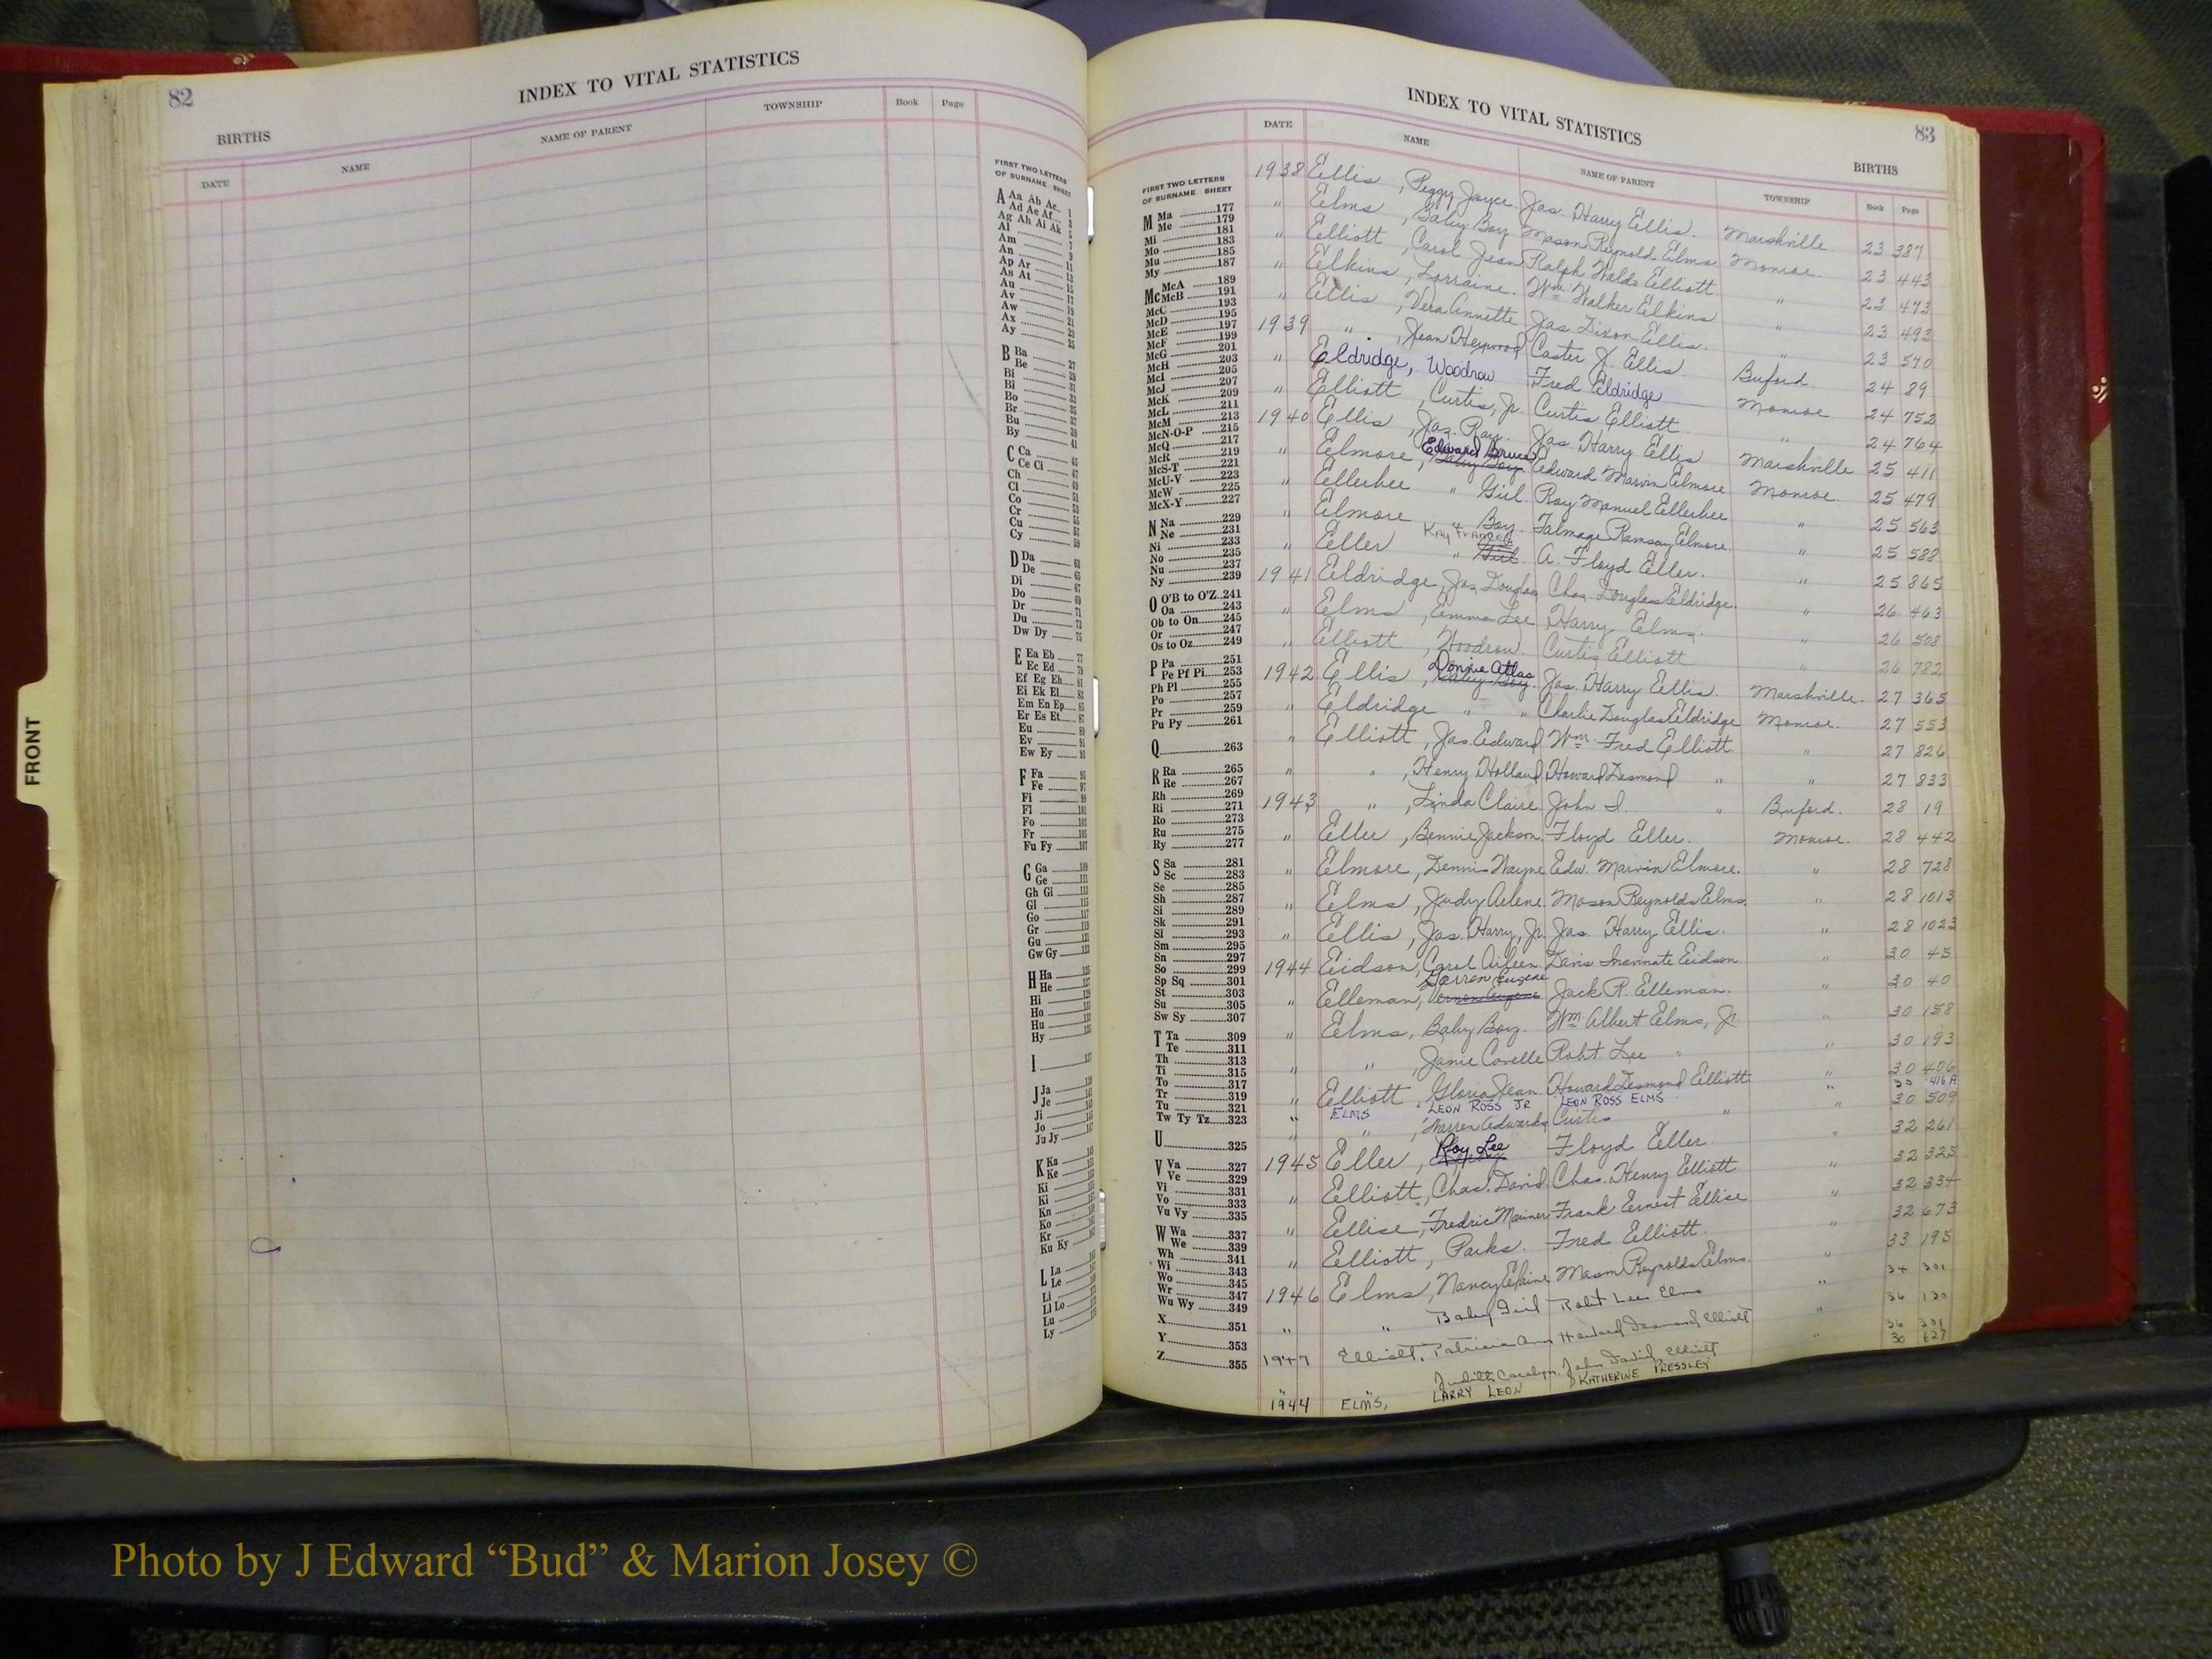 82
INDEX TO VITAL STATISTICS
BIRTHS
DATE NAME NAME OF PARENT TOWNSHIP Book Page
FIRST TWO LETTERS
OF SURNAME SHEET
A Aa Ab Ac
Ad Ae Af
Ag Ah Ai Ak
Al
Am
An
Ap Ar
As At
Au
Av
Aw
Ax
Ay
B Ba
Be
Bi
Bl
Bo
Br
Bu
By
C Ca
Ce Ci
Ch
Cl
Co
Cr
Cu
Cy
D Da
De
Di
Do
Dr
Du
Dw Dy
E Ea Eb
Ec Ed
Ef Eg Eh
Ei Ek El
Em En Ep
Er Es Et
Eu
Ev
Ew Ey
F Fa
Fe
Fi
Fl
Fo
Fr
Fu Fy
G Ga
Ge
Gh Gi
Gl
Go
Gr
Gu
Gw Gy
H Ha
He
Hi
Ho
Hu
Hy
I
J Ja
Je
Ji
Jo
Ju Jy
K Ka
Ke
Ki
Kn
Ko
Kr
Ku Ky
L La
Le
Li
Ll Lo
Lu
Ly
INDEX TO VITAL STATISTICS
83
BIRTHS
DATE NAME NAME OF PARENT TOWNSHIP Book Page
FIRST TWO LETTERS
OF SURNAME SHEET
M Ma 177
Me 179
Mi 181
Mo 183
Mu 185
My 187
Mc McA 189
McB 191
McC 193
McD 195
McE 197
McF 199
McG 201
McH 203
McI 205
McJ 207
McK 209
McL 211
McM 213
McN-O-P 215
McQ 217
McR 219
McS-T 221
McU-V 223
McW 225
McX-Y 227
N Na 229
Ne 231
Ni 233
No 235
Nu 237
Ny 239
O O'B to O'Z 241
Oa 243
Ob to On 245
Or 247
Os to Oz 249
P Pa 251
Pe Pf Pi 253
Ph Pl 255
Po 257
Pr 259
Pu Py 261
Q 263
R Ra 265
Re 267
Rh 269
Ri 271
Ro 273
Ru 275
Ry 277
S Sa 281
Sc 283
Se 285
Sh 287
Si 289
Sk 291
Sl 293
Sm 295
Sn 297
So 299
Sp Sq 301
St 303
Su 305
Sw Sy 307
T Ta 309
Te 311
Th 313
Ti 315
To 317
Tr 319
Tu 321
Tw Ty Tz 323
U 325
V Va 327
Ve 329
Vi 331
Vo 333
Vu Vy 335
W Wa 337
We 339
Wh 341
Wi 343
Wo 345
Wr 347
Wu Wy 349
X 351
Y 353
Z 355
1938 Ellis, Peggy Joyce. Jas. Harry Ellis. Marshville. 23 387
" Elms, Baby Boy Mason Reynold Elms Monroe. 23 443
" Elliott, Carol Jean Ralph Waldo Elliott. " 23 473
" Elkins, Lorraine. Wm. Walker Elkins " 23 493
" Ellis, Vera Annette Jas. Dixon Ellis. " 23 570
1939 " , Jean Heywood Caster J. Ellis Buford. 24 89
" Eldridge, Woodrow Fred Eldridge Monroe 24 752
" Elliott, Curtis, Jr. Curtis Elliott " 24 764
1940 Ellis, Jas. Ray. Jas. Harry Ellis Marshville 25 411
" Elmore, Edward Bruce Baby Boy. Edward Marvin Elmore Monroe. 25 479
" Ellerbee " Girl. Roy Manuel Ellerbee " 25 563
" Elmore " Boy. Talmage Ramsey Elmore. " 25 588
" Eller Kay Frances " Girl. A. Floyd Eller. " 25 865
1941 Eldridge, Jas. Douglas Chas. Douglass Eldridge. " 26 463
" Elms, Emma Lee Harry Elms. " 26 508
" Elliott, Woodrow. Curtis Elliott " 26 782
1942 Ellis, Donnie Atlas Baby Boy. Jas. Harry Ellis. Marshville. 27 365
" Eldridge " " Charlie Douglas Eldridge Monroe. 27 553
" Elliott, Jas. Edward Wm. Fred Elliott " 27 826
" " , Henry Holland Howard Desmond " " 27 833
1943 " , Linda Claire John D. " Buford. 28 19
" Eller, Bennie Jackson. Floyd Eller. Monroe. 28 442
" Elmore, Dennis Wayne Edw. Marvin Elmore. " 28 728
" Elms, Judy Arlene. Mason Reynolds Elms. " 28 1013
" Ellis, Jas. Harry, Jr. Jas. Harry Ellis. " 28 1023
1944 Eidson, Carol Aileen. Davis Eidson. " 30 45
" Elleman, Darren Eugene Vernon Eugene Jack R. Elleman. " 30 40
" Elms, Baby Boy. Wm. Albert Elms, Jr. " 30 158
" " , Janie Covelle Robt. Lee " " 30 193
" Elliott, Gloria Jean. Howard Desmond Elliott " 30 406
" ELMS LEON ROSS JR LEON ROSS ELMS " 30 416A
" " , Warren Edwards Curtis " " 30 509
1945 Eller, Roy Lee Floyd Eller. " 32 261
" Elliott, Chas. David. Chas. Henry Elliott " 32 325
" Ellise, Fredric Mariner Frank Ernest Ellise " 32 334
" Elliott, Parks. Fred Elliott. " 32 673
1946 Elms, Nancy Elaine Mason Reynolds Elms. " 33 195
" " Baby Girl Robt Lee Elms " 34 301
1947 Elliott, Patricia Ann Howard Desmond Elliott " 36 130
" " Judith Carolyn. John David Elliott 36 331
1944 ELMS, LARRY LEON KATHERINE PRESSLEY 30 627
FRONT
Photo by J Edward “Bud” & Marion Josey ©